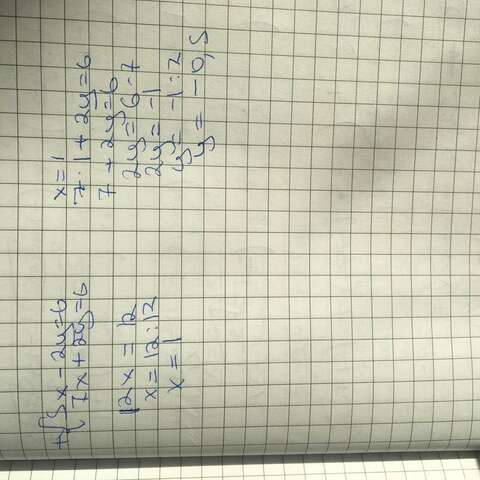 +{5x - 2y = 6
7x + 2y = 6
12x = 12
x = 12 : 12
x = 1
x = 1
7 · 1 + 2y = 6
7 + 2y = 6
2y = 6 - 7
2y = -1
y = -1 : 2
y = -0,5